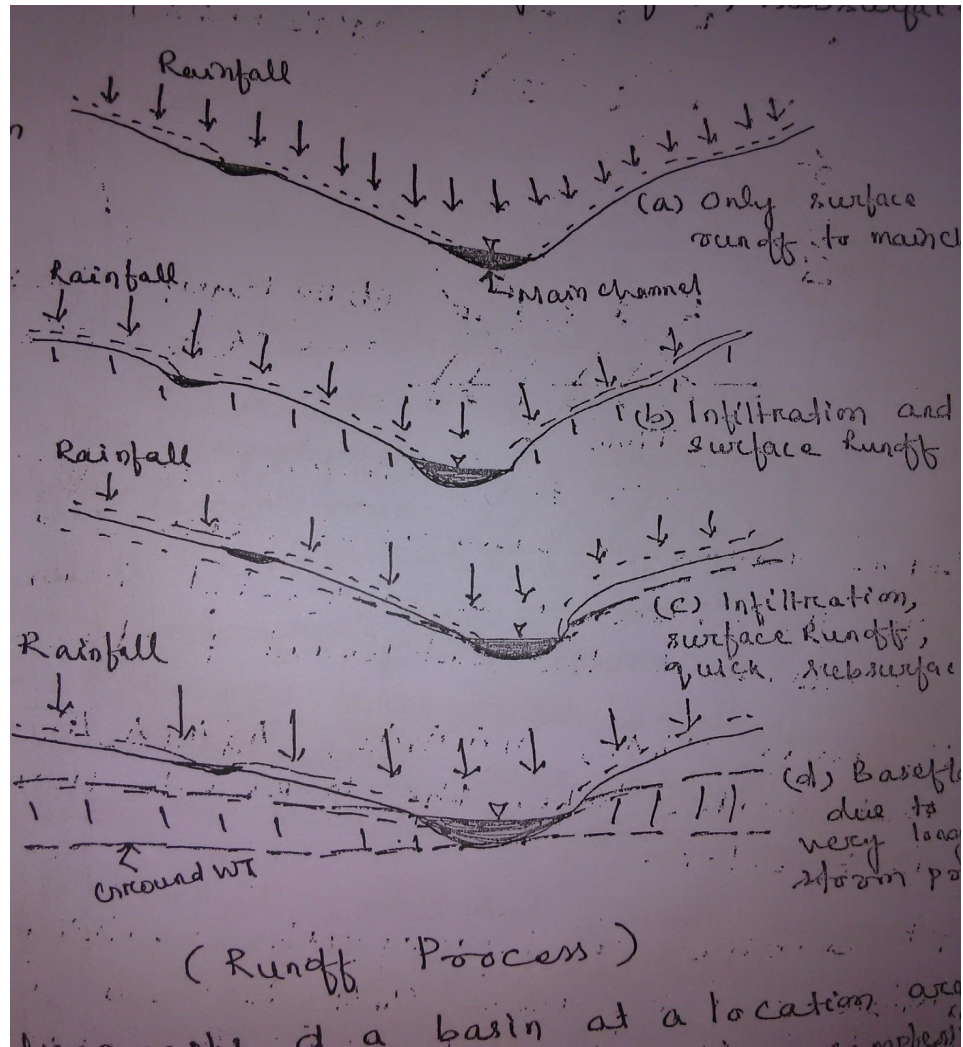 Rainfall
(a) Only surface
runoff to main ch
Main channel
Rainfall
(b) Infiltration and
surface Runoff
Rainfall
(c) Infiltration,
surface Runoff,
quick subsurface
Rainfall
(d) Baseflo
due to
very long
storm pe
Ground WT
(Runoff Process)
of a basin at a location are